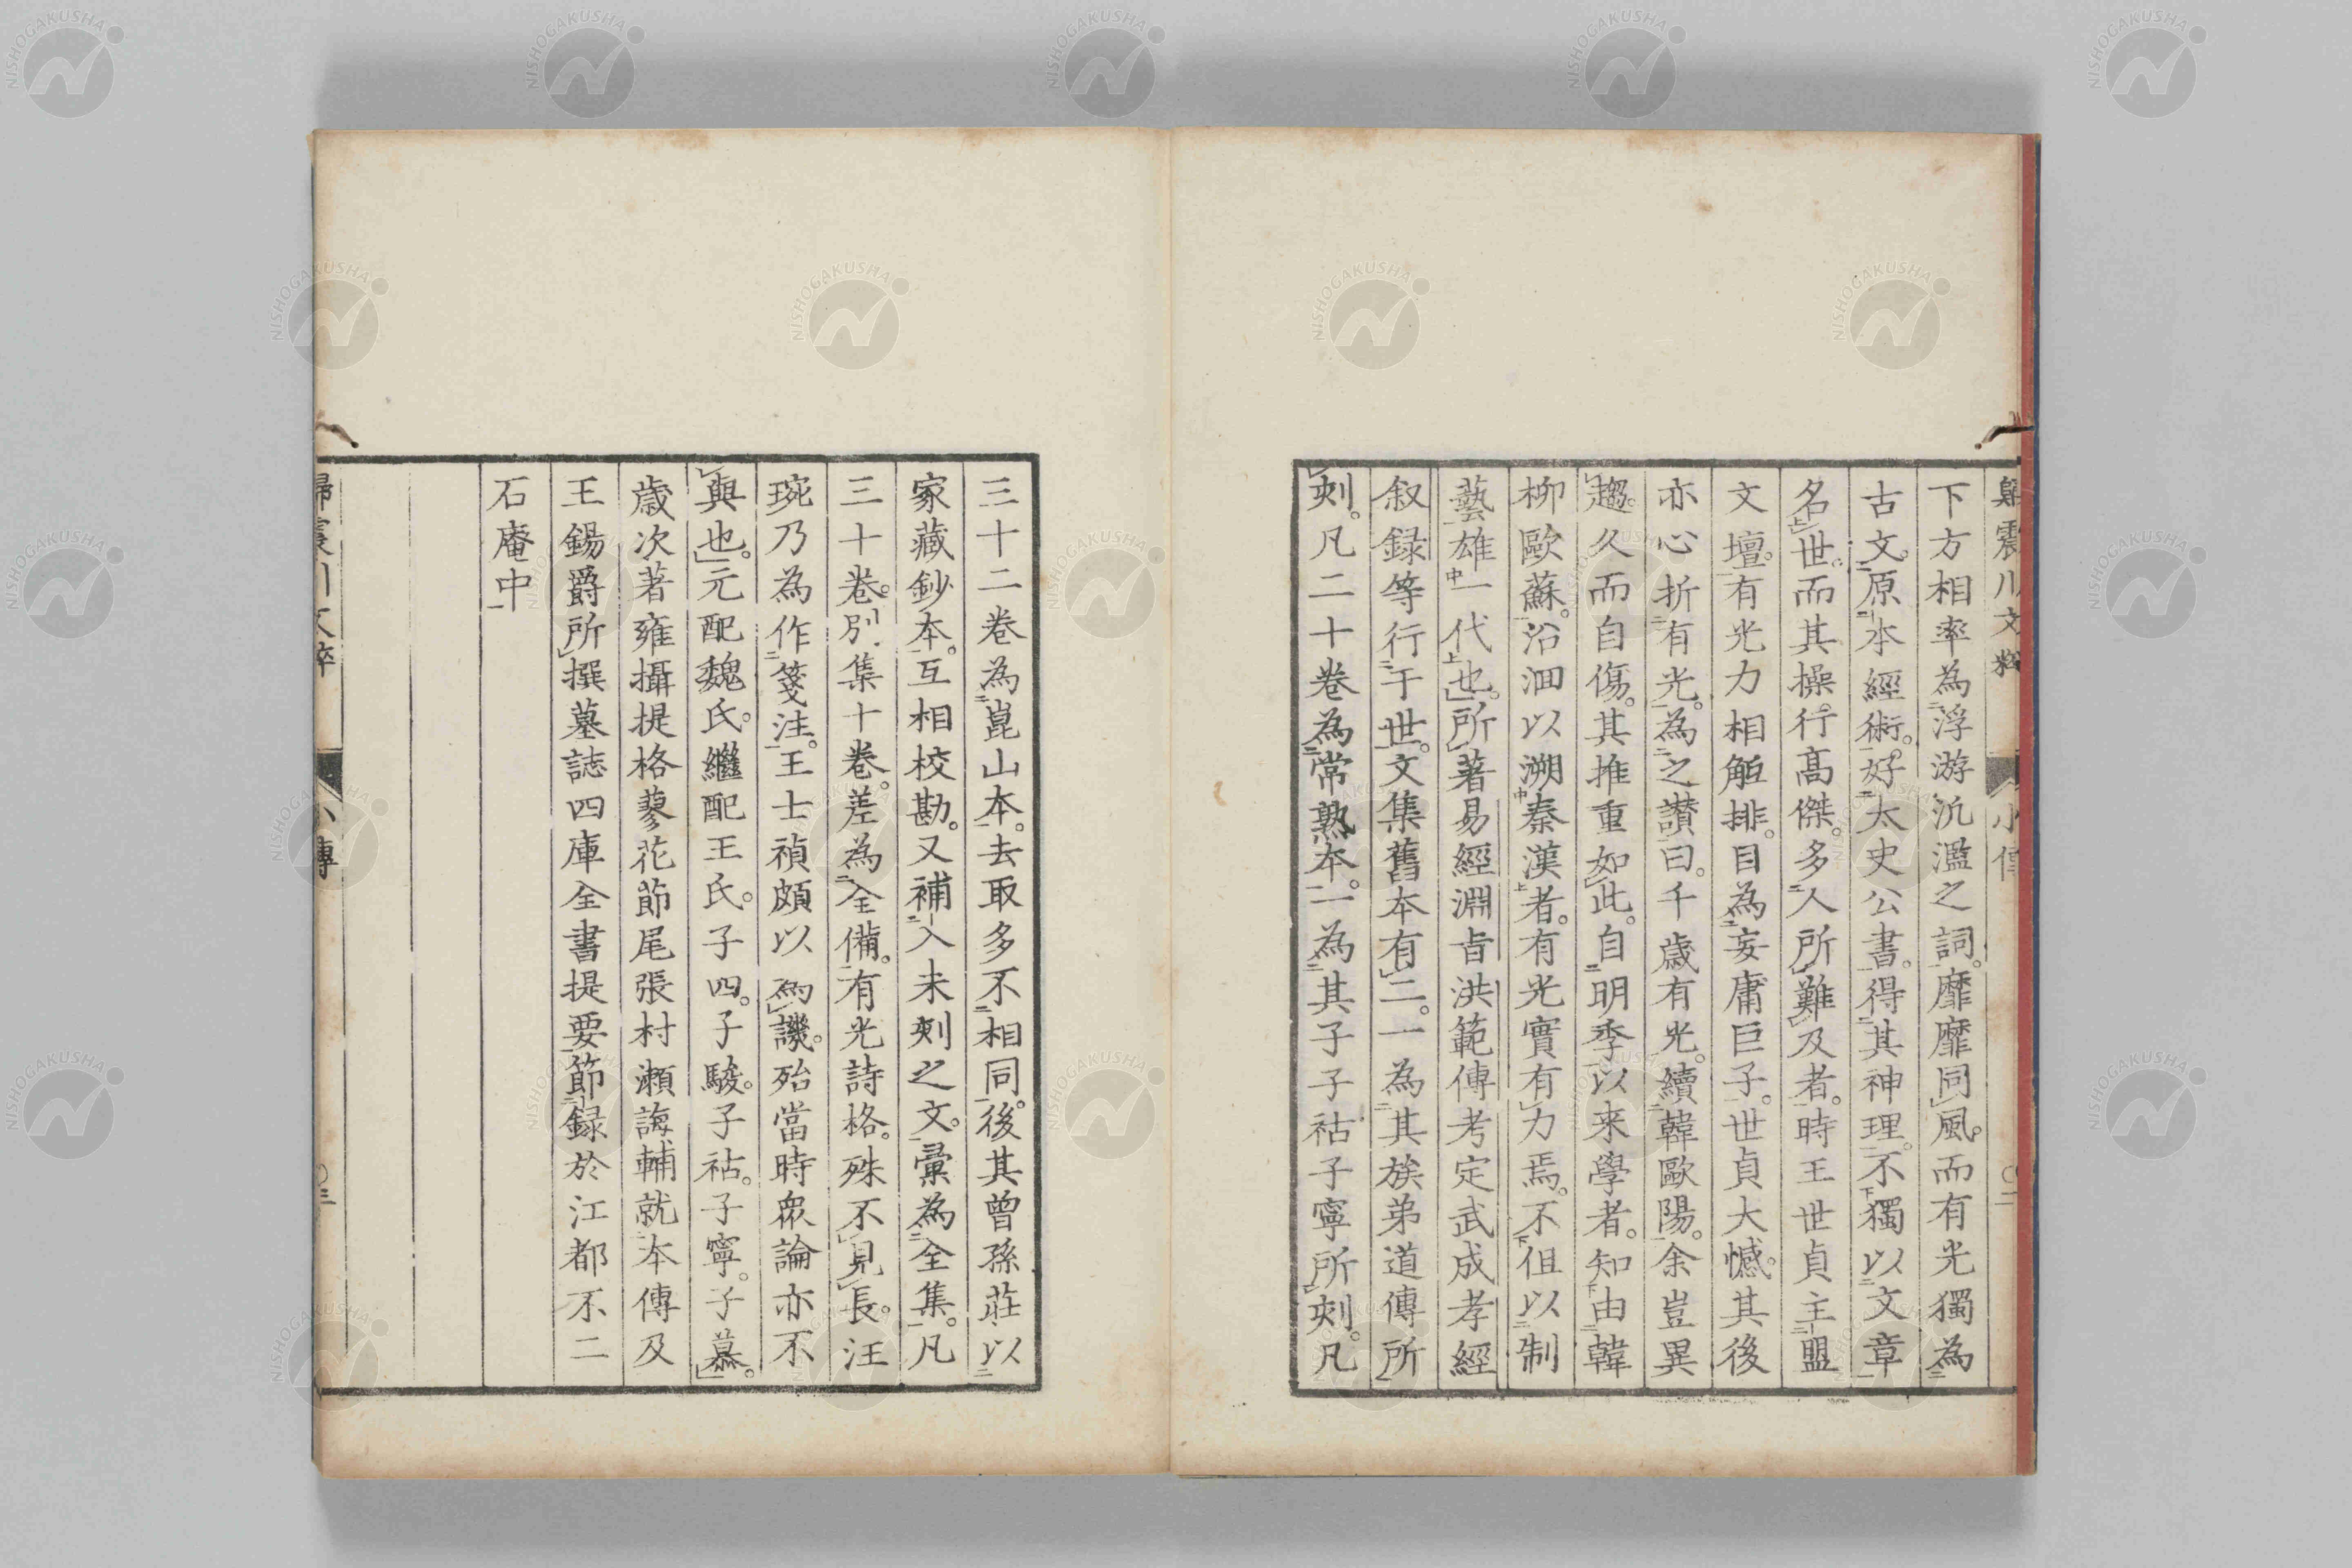 歸震川文粹 小傳 〇二
下方相率為浮游汎濫之詞。靡靡同風。而有光獨為
古文。原本經術。好太史公書。得其神理。不獨以文章
名世。而其操行高傑。多人所難及者。時王世貞主盟
文壇。有光力相觝排。目為妄庸巨子。世貞大憾。其後
亦心折有光。為之讚曰。千歲有光。續韓歐陽。余豈異
趨。久而自傷。其推重如此。自明季以来學者。知由韓
柳歐蘇。沿洄以溯秦漢者。有光實有力焉。不但以制
藝雄一代也。所著易經淵旨洪範傳考定武成孝經
叙録等行于世。文集舊本有二。一為其族弟道傳所
刻。凡二十卷為常熟本。一為其子子祜子寧所刻。凡
三十二卷為崑山本。去取多不相同。後其曾孫莊以
家藏鈔本。互相校勘。又補入未刻之文。彙為全集。凡
三十卷。別集十卷。差為全備。有光詩格。殊不見長。汪
琬乃為作箋注。王士禎頗以為譏。殆當時眾論亦不
與也。元配魏氏。繼配王氏。子四。子駿。子祜。子寧。子慕。
歲次著雍攝提格蓼花節尾張村瀬誨輔就本傳及
王錫爵所撰墓誌四庫全書提要節録於江都不二
石庵中
歸震川文粹 小傳 〇三
NISHOGAKUSHA